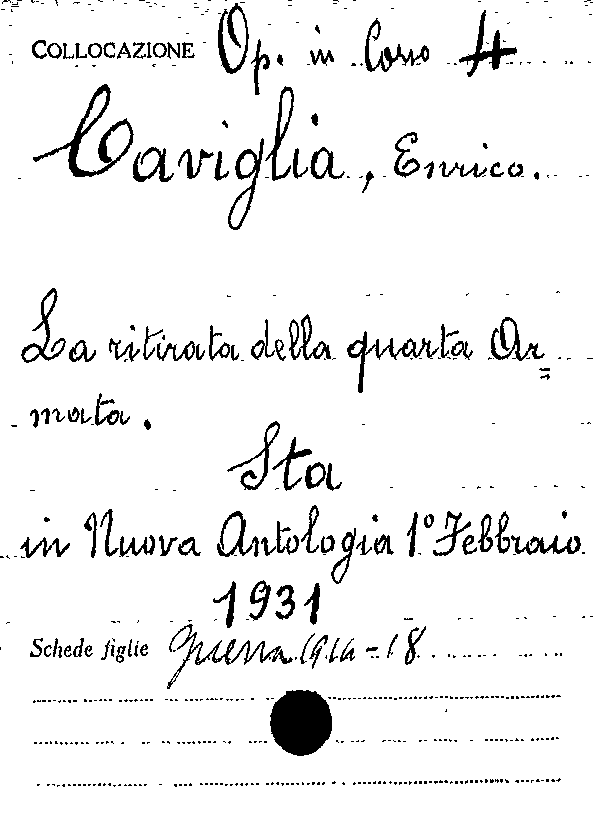 COLLOCAZIONE Op. in Corso 4
Caviglia, Enrico.
La ritirata della quarta Ar=
mata.
Sta
in Nuova Antologia 1° Febbraio
1931
Schede figlie Guerra 1914-18